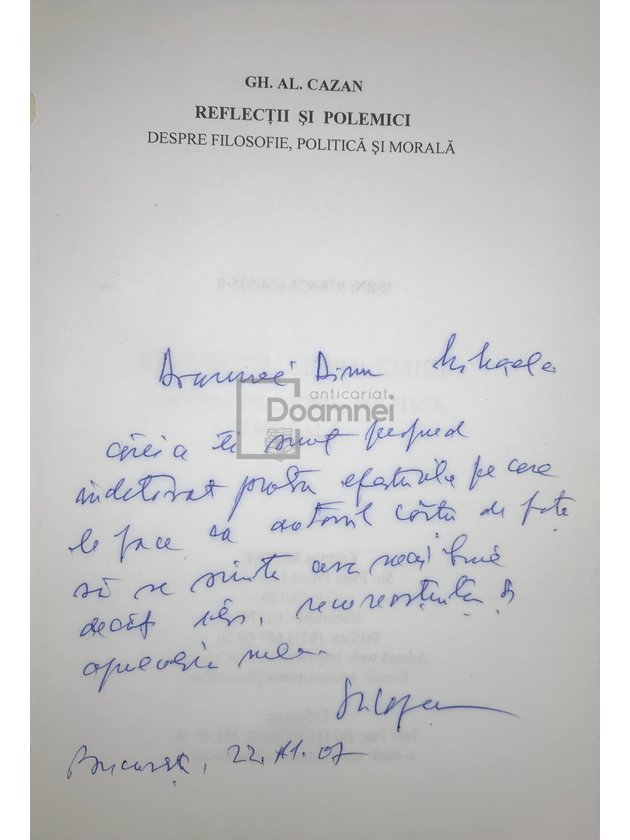 GH. AL. CAZAN
REFLECȚII ȘI POLEMICI
DESPRE FILOSOFIE, POLITICĂ ȘI MORALĂ
ISBN: 978-973-624-535-0
Doamnei Dinu Mihaela
anticariat
Doamnei
căreia îi sunt
îndatorat pentru eforturile pe care
le face ca autorul cărții de față
să se simtă cu mai bine
decât ieri, recunoștința și
mea.
București, 22.11.07